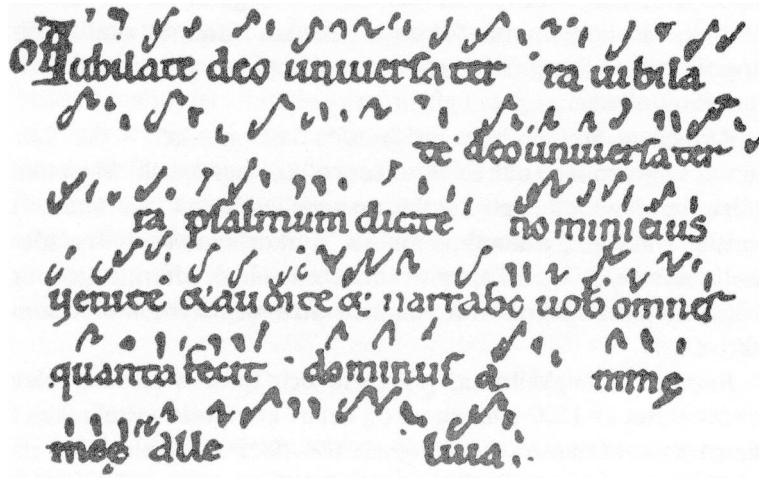 Off Iubilate deo uniuersa ter ra iubila
te deo uniuersa ter
ra psalmum dicite nomini eius
uenite & audite &: narrabo uob omnes
quanta fecit · dominus a nime
meę alle luia·